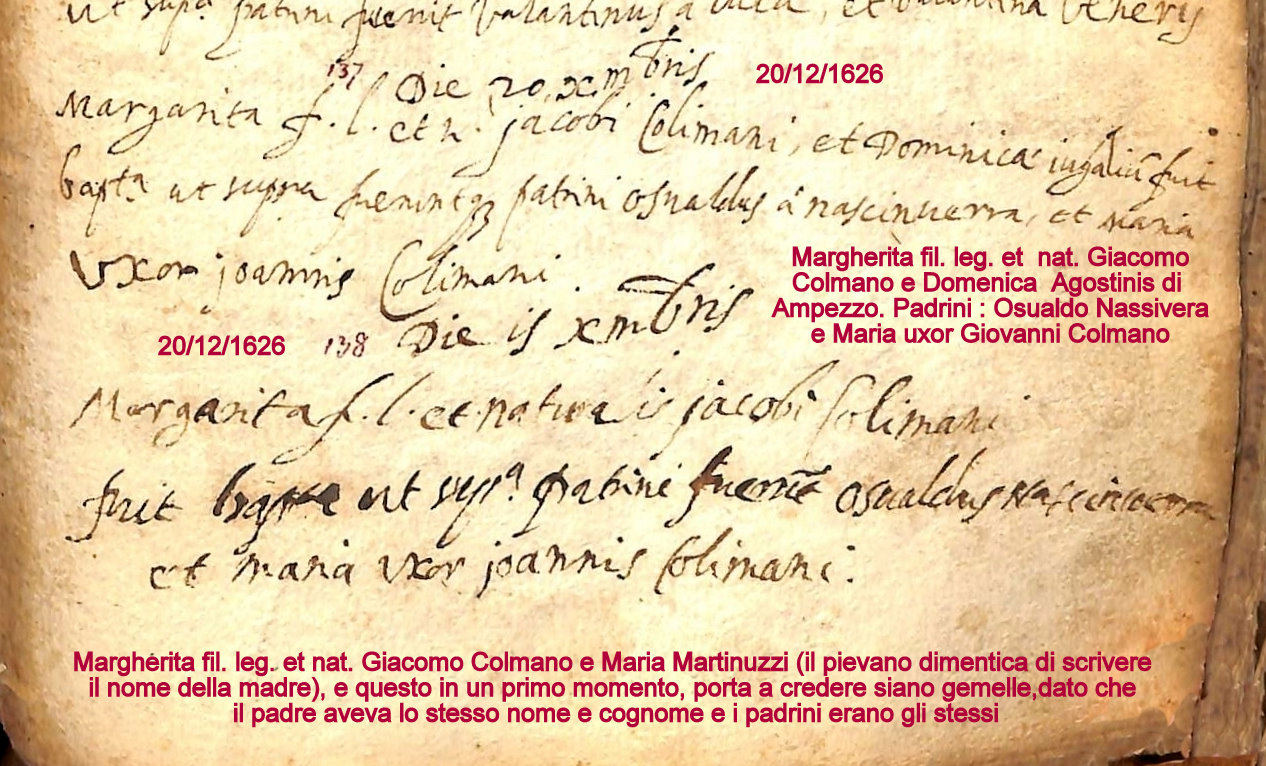 ut sup.ª patrini fuerit Valantinus à et Valentina Veneris
137 Die 20. xmbris 20/12/1626
Margarita f. l. et n. jacobi Colimani, et Dominicæ iugaliũ fuit
bapt.ª ut supra fuerintqz patrini osualdus à nascinuerra, et Maria
Vxor joannis Colimani.
Margherita fil. leg. et nat. Giacomo
Colmano e Domenica Agostinis di
Ampezzo. Padrini : Osualdo Nassivera
e Maria uxor Giovanni Colmano
20/12/1626 138 Die is xmbris
Margarita f. l. et naturalis jacobi Colimani
fuit ut sup.ª patrini osualdus nascinuerra
et maria vxor joannis Colimani.
Margherita fil. leg. et nat. Giacomo Colmano e Maria Martinuzzi (il pievano dimentica di scrivere
il nome della madre), e questo in un primo momento, porta a credere siano gemelle,dato che
il padre aveva lo stesso nome e cognome e i padrini erano gli stessi